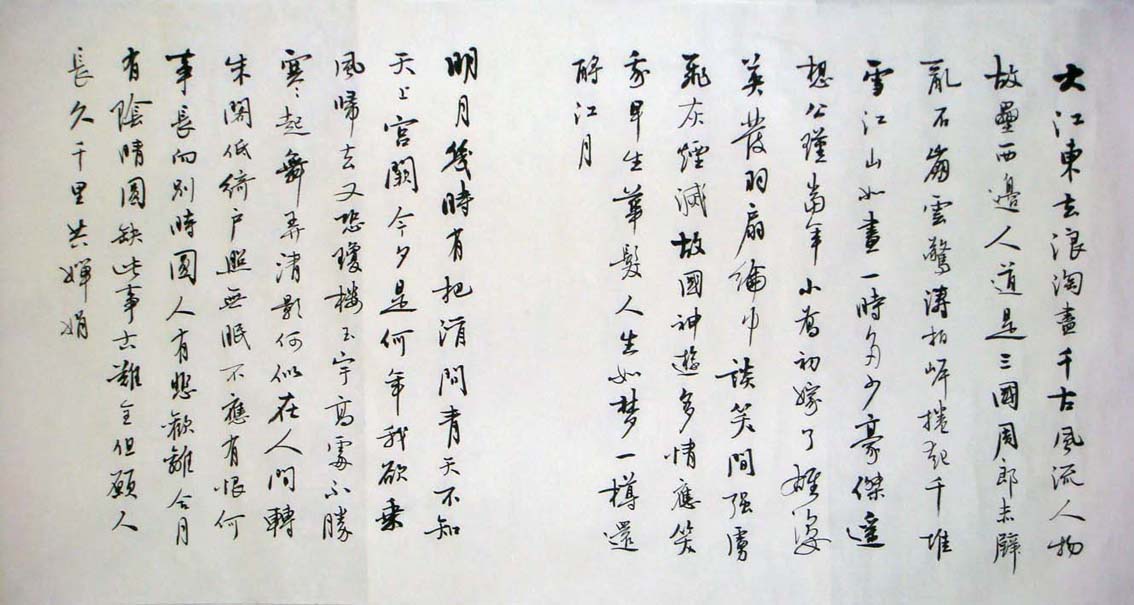 大江東去浪淘盡千古風流人物
故壘西邊人道是三國周郎赤壁
亂石崩雲驚濤拍岸捲起千堆
雪江山如畫一時多少豪傑遙
想公瑾當年小喬初嫁了雄姿
英發羽扇綸巾談笑間强虜
飛灰煙滅故國神遊多情應笑
我早生華髮人生如夢一樽還
酹江月
明月幾時有把酒問青天不知
天上宮闕今夕是何年我欲乘
風歸去又恐瓊樓玉宇高處不勝
寒〻起舞弄清影何似在人間轉
朱閣低綺戶照無眠不應有恨何
事長向別時圓人有悲歡離合月
有陰晴圓缺此事古難全但願人
長久千里共嬋娟